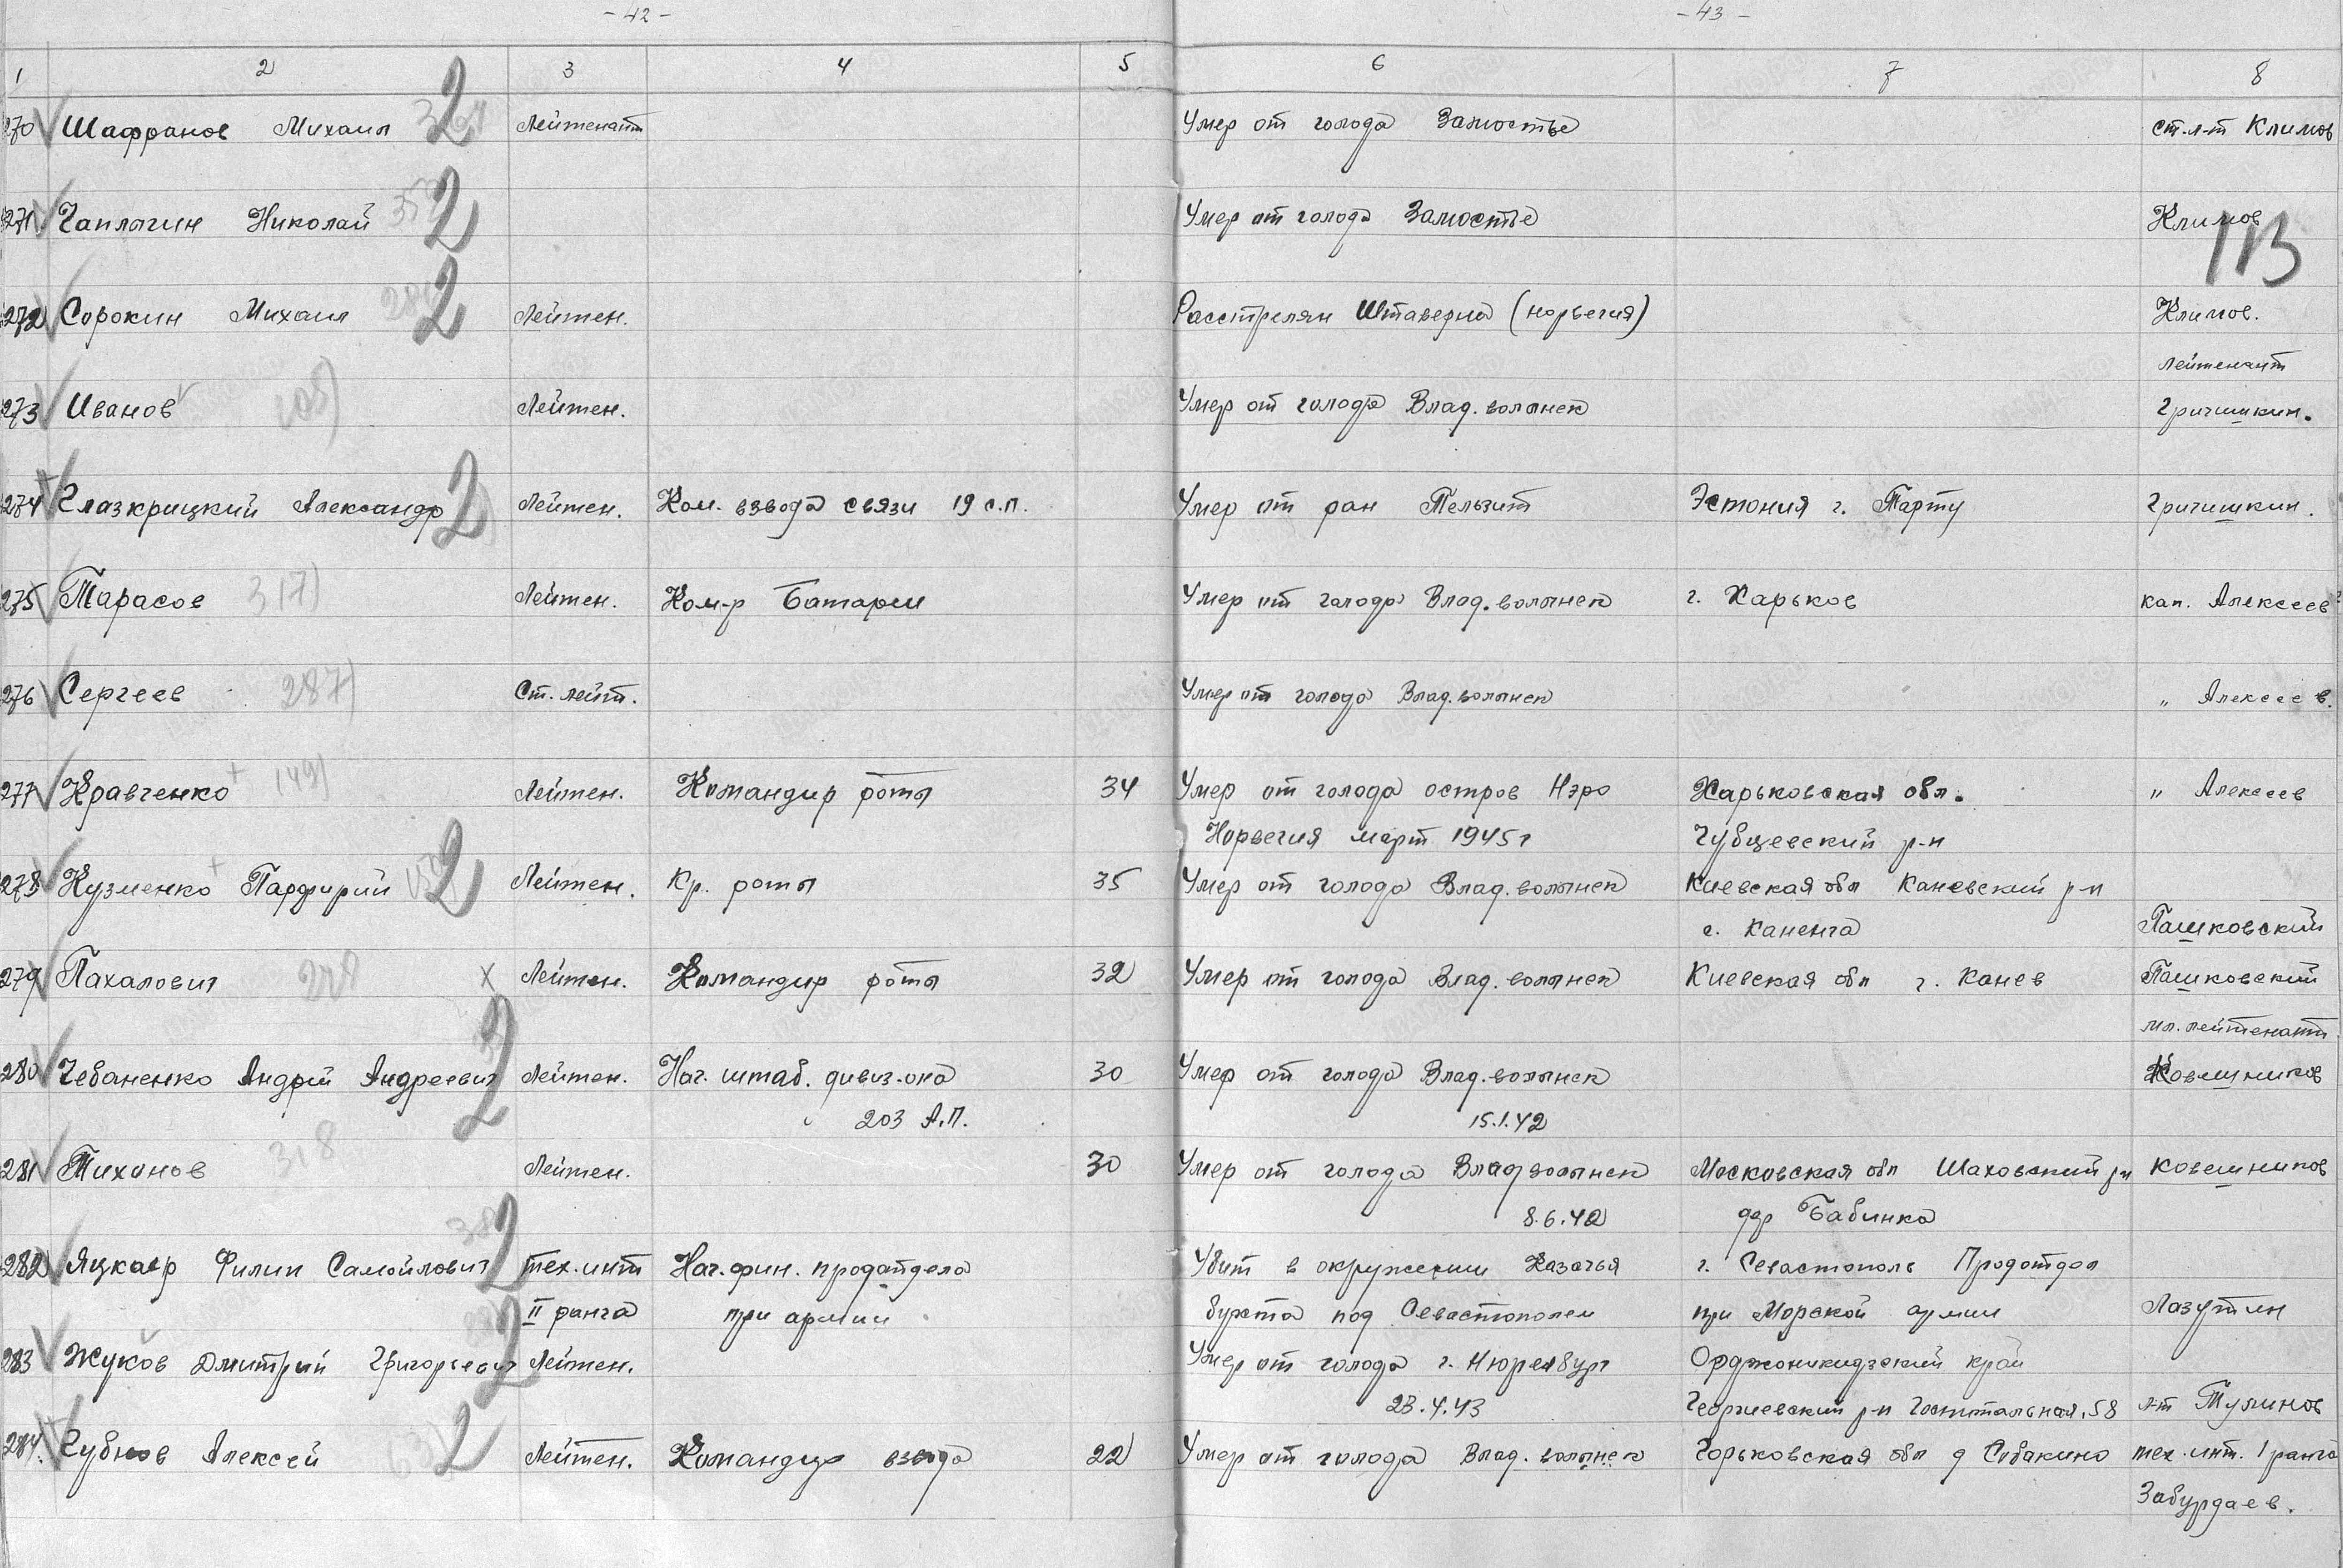 - 42 -
- 43 -
1 2 3 4 5 6 7 8
270 Шафранов Михаил 2 Лейтенант Умер от голода Замостье ст.л-т Климов
271 Чаплыгин Николай 2 Умер от голода Замостье Климов
113
272 Сорокин Михаил 2 Лейтен. Расстрелян Штаверна (норвегия) Климов.
лейтенант
273 Иванов Лейтен. Умер от голода Влад. волынск Гричишкин.
274 Глазкрицкий Александр 2 Лейтен. Ком. взвода связи 19 с.п. Умер от ран Тельзит Эстония г. Тарту Гричишкин.
275 Тарасов 317) Лейтен. Ком-р Батареи Умер от голода Влад. волынск г. Харьков кап. Алексеев
276 Сергеев 287) Ст. лейт. Умер от голода Влад. волынск " Алексеев.
277 Кравченко 149) Лейтен. Командир роты 34 Умер от голода остров Нэро Харьковская обл. " Алексеев
Норвегия март 1945г Чубцевский р-н
278 Кузменко Парфирий 2 Лейтен. Кр. роты 35 Умер от голода Влад. волынск Киевская обл Каневский р-н
с. Каненга Пашковский
279 Пахалович 228 х Лейтен. Командир роты 32 Умер от голода Влад. волынск Киевская обл г. Канев Пашковский
мл. лейтенант
280 Чебаненко Андрей Андреевич 2 Лейтен. Нач. штаб. дивиз-она 30 Умер от голода Влад. волынск Ковешников
203 А.П. 15.1.42
281 Тиханов 318 Лейтен. 30 Умер от голода Влад волынск Московская обл Шаховский р-н Ковешников
8.6.42 дер Бабинка
282 Яцкаер Филип Самойлович 2 тех. инт Нач. фин. продотдела Убит в окружении Казачья г. Севастополь Продотдел
II ранга при армии бухта под Севастополем при Морской армии Лазутин
283 Жуков Дмитрий Григорьевич 2 Лейтен. Умер от голода г. Нюренбург Орджоникидзский край
23.4.43 Георгиевский р-н Госпитальная, 58 л-т Тулинов
284. Губнов Алексей 2 Лейтен. Командир взвода 22 Умер от голода Влад. волынск Горьковская обл д Собакино тех. инт. 1 ранга
Забурдаев.